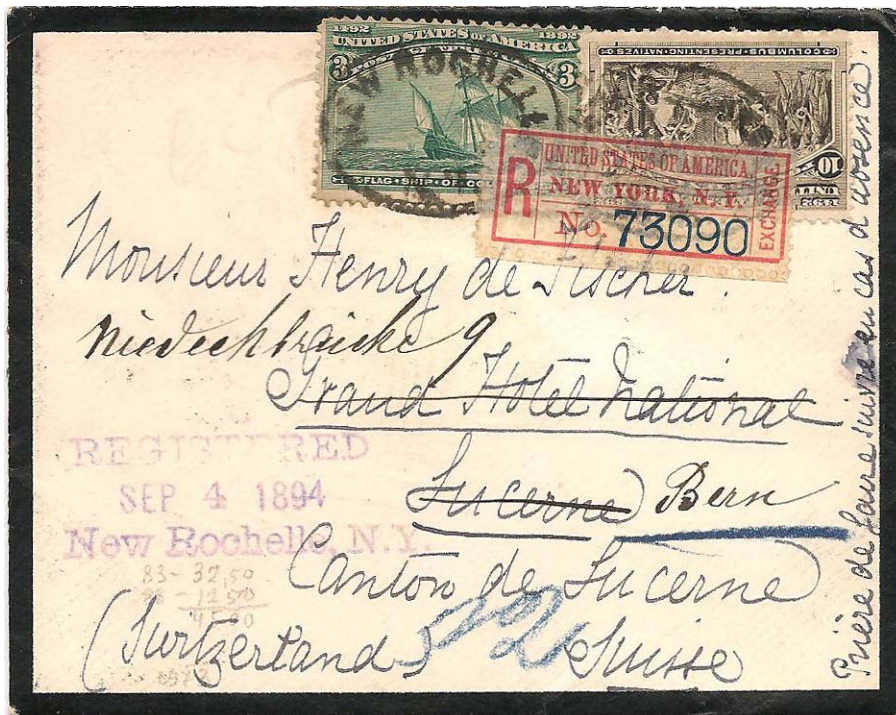 1492 UNITED STATES OF AMERICA 1892
3 3
NEW ROCHELLE
FLAG-SHIP OF
COLUMBUS PRESENTING NATIVES
10
R
UNITED STATES OF AMERICA
NEW YORK, N.Y.
No. 73090
EXCHANGE
Monsieur Henry de Fischer.
9
Grand Hotel National
Lucerne Bern
Canton de Lucerne
(Switzerland) Suisse
REGISTERED
SEP 4 1894
New Rochelle, N.Y.
83-32,50
Prière de faire suivre en cas d'absence.